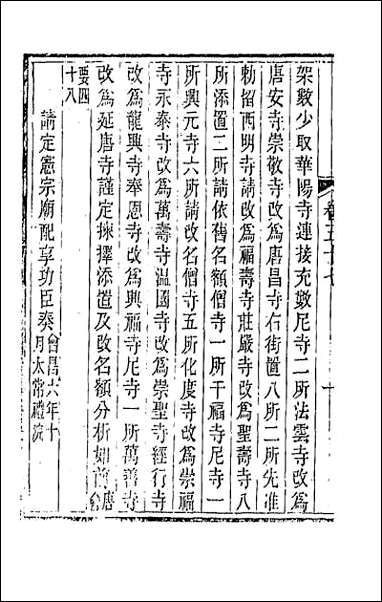 架數少取華陽寺連接充數尼寺二所法雲寺改爲
唐安寺崇敬寺改爲唐昌寺右街置八所二所先准
勅留西明寺請改爲福壽寺莊嚴寺改爲聖壽寺八
所添置二所請依舊名額僧寺一所千福寺尼寺一
所興元寺六所請改名僧寺五所化度寺改爲崇福
寺永泰寺改爲萬壽寺温國寺改爲崇聖寺經行寺
改爲龍興寺奉恩寺改爲興福寺尼寺一所萬善寺
改爲延唐寺謹定揀擇添置及改名額分析如前唐會
要四
十八
請定憲宗廟配享功臣奏會昌六年十
月太常禮院
卷五十七
十